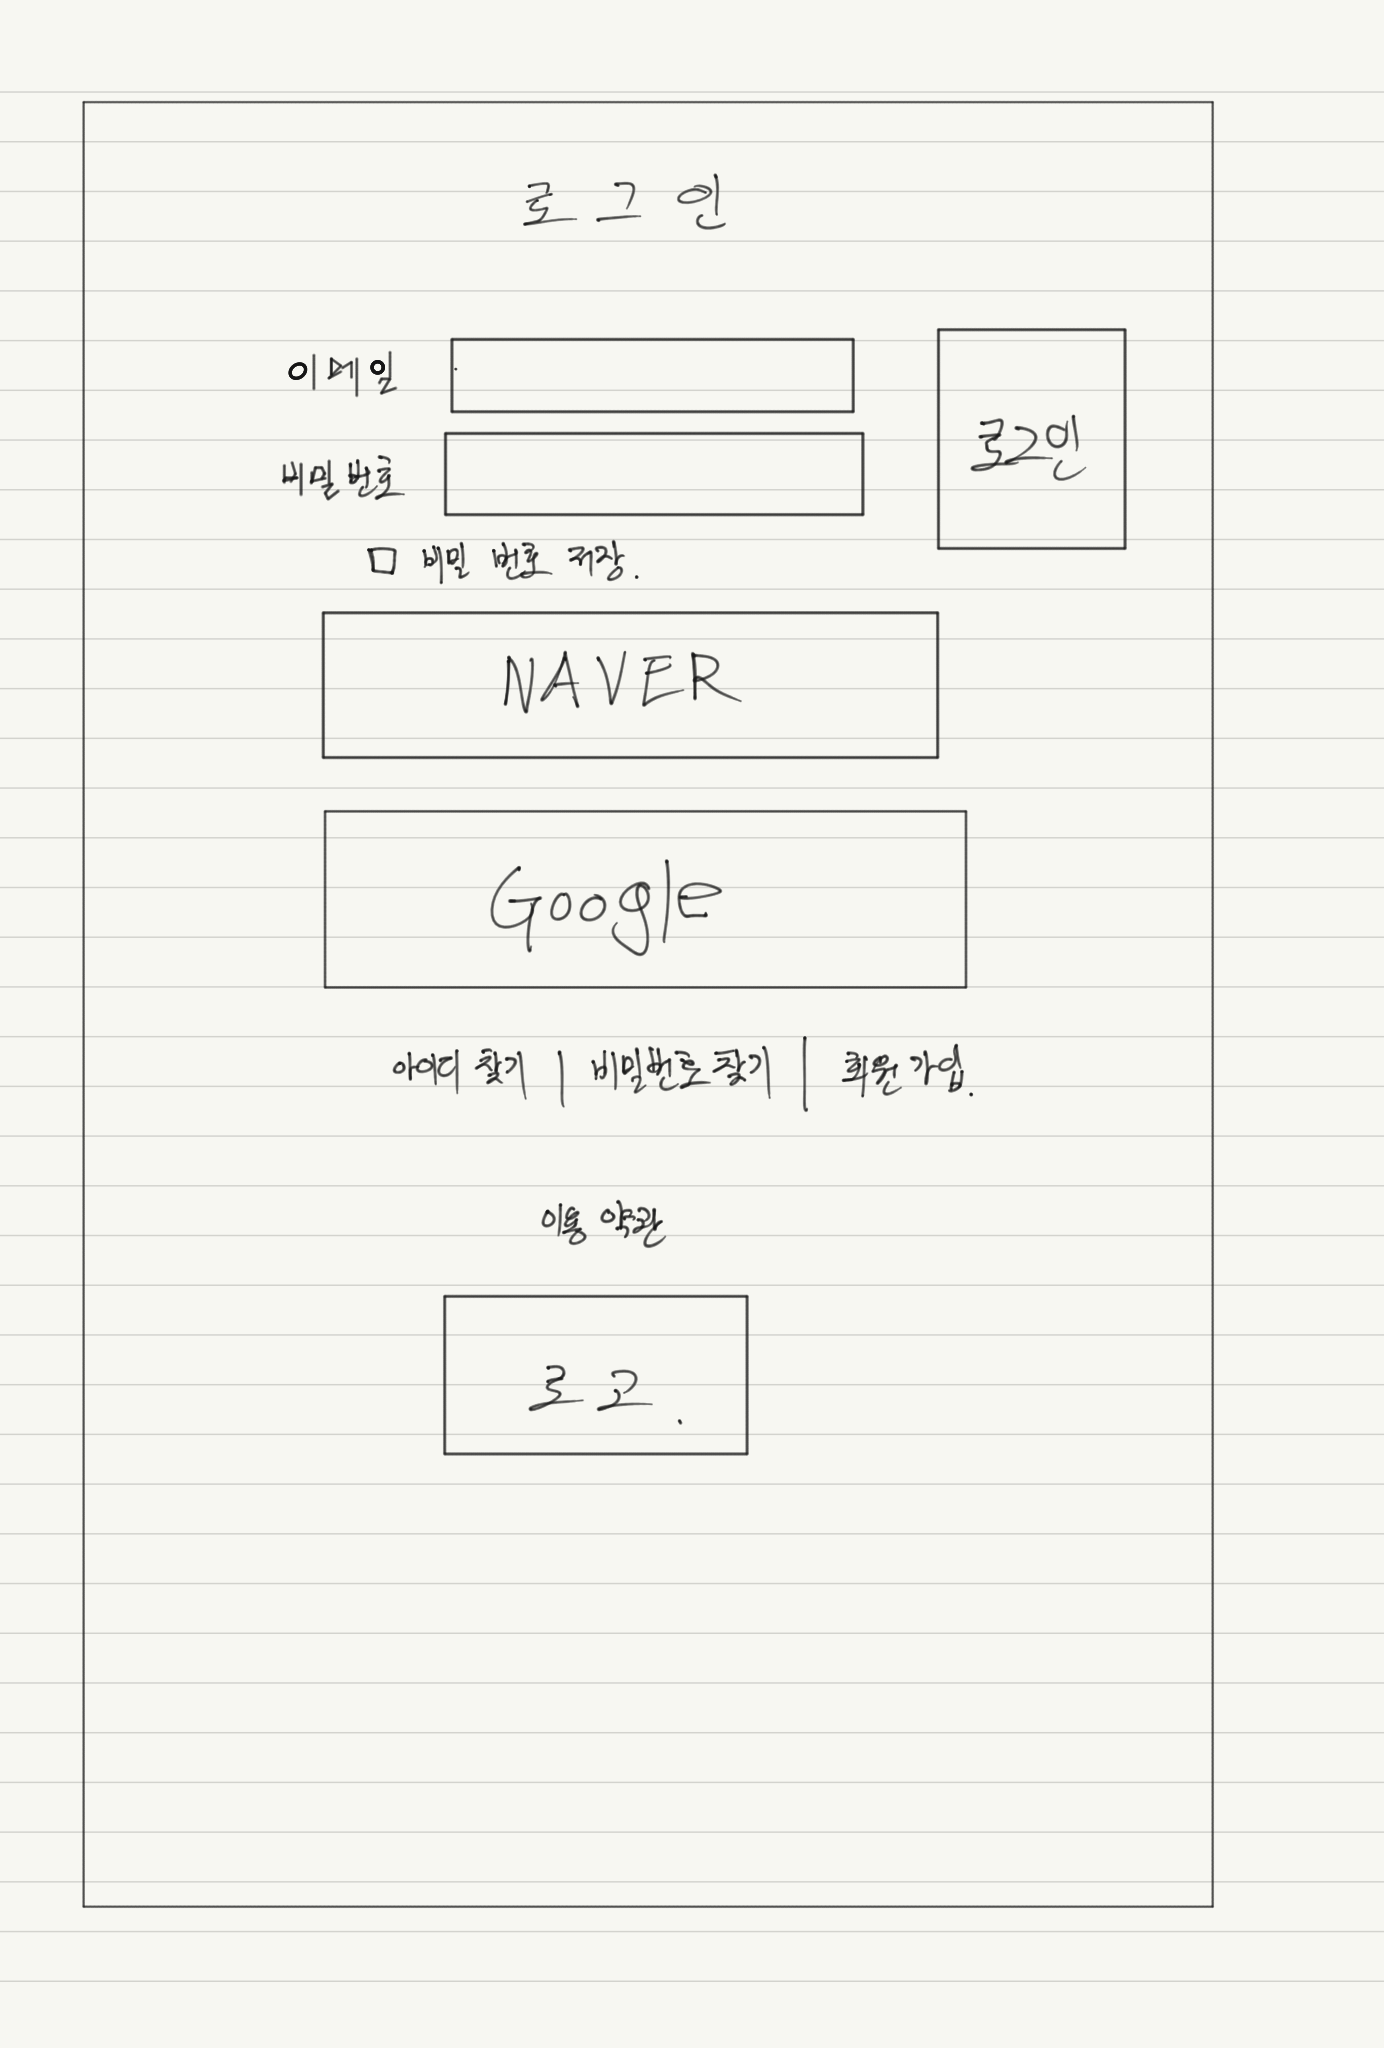 로그인
이메일
비밀번호
로그인
비밀 번호 저장.
NAVER
Google
아이디 찾기 | 비밀번호 찾기 | 회원 가입.
이용 약관
로고.